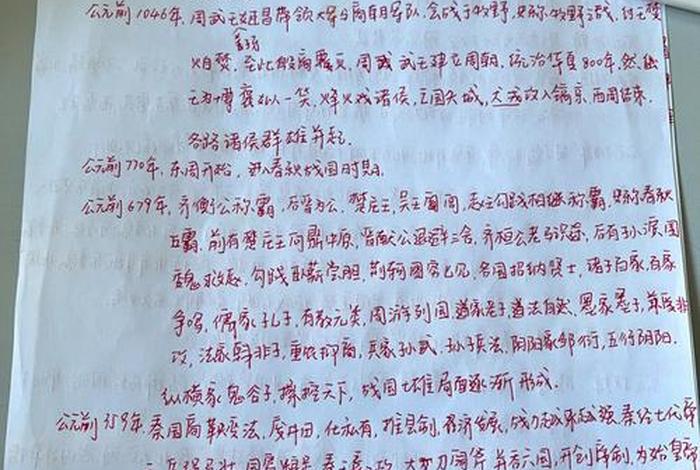 公元前1046年,周武王姬昌带领大军与商朝军队,会战于牧野,史称牧野之战,纣王登
鹿台
火自焚,至此殷商覆灭,周武王建立周朝,统治华夏800年,然幽
王为博褒姒一笑,烽火戏诸侯,立国失城,犬戎攻入镐京,西周结束.
各路诸侯群雄并起.
公元前770年,东周开始,进入春秋战国时期.
公元前679年,齐桓公称霸,后晋文公,楚庄王,吴王阖闾,越王勾践相继称霸,史称春秋
五霸,前有楚庄王问鼎中原,晋献公退避三舍,齐桓公老马识途,后有孙膑围
魏救赵,勾践卧薪尝胆,荆轲图穷匕见,各国招纳贤士,诸子百家,百家
争鸣,儒家孔子,有教无类,周游列国,道家老子,道法自然,墨家墨子,兼爱非
攻,法家韩非子,重农抑商,兵家孙武,孙子兵法,阴阳家邹衍,五行阴阳.
纵横家鬼谷子,操控天下,战国七雄局面逐渐形成.
公元前359年,秦国商鞅变法,废井田,化私有,推县制,经济发展,战力越来越强,秦经七代